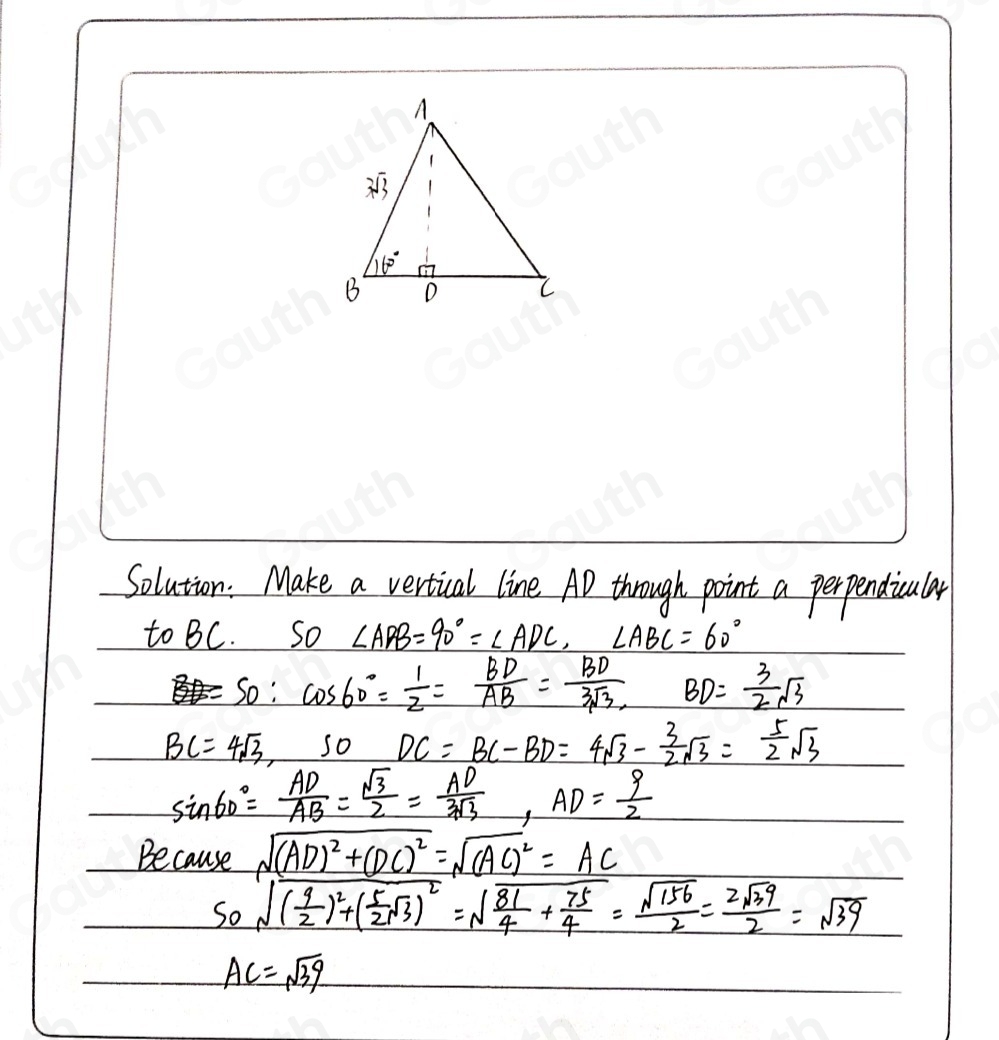 A
3√3
60°
B D C
Solution: Make a vertical line AD through point a perpendicular
to BC. So ∠ADB=90°=∠ADC, ∠ABC=60°
So: cos60°=1/2=BD/AB=BD/3√3, BD=3/2√3
BC=4√3, so DC=BC-BD=4√3-3/2√3=5/2√3
sin60°=AD/AB=√3/2=AD/3√3, AD=9/2
Because √((AD)²+(DC)²)=√(AC)²=AC
So √((9/2)²+(5/2√3)²)=√(81/4+75/4)=√156/2=2√39/2=√39
AC=√39
Gauth